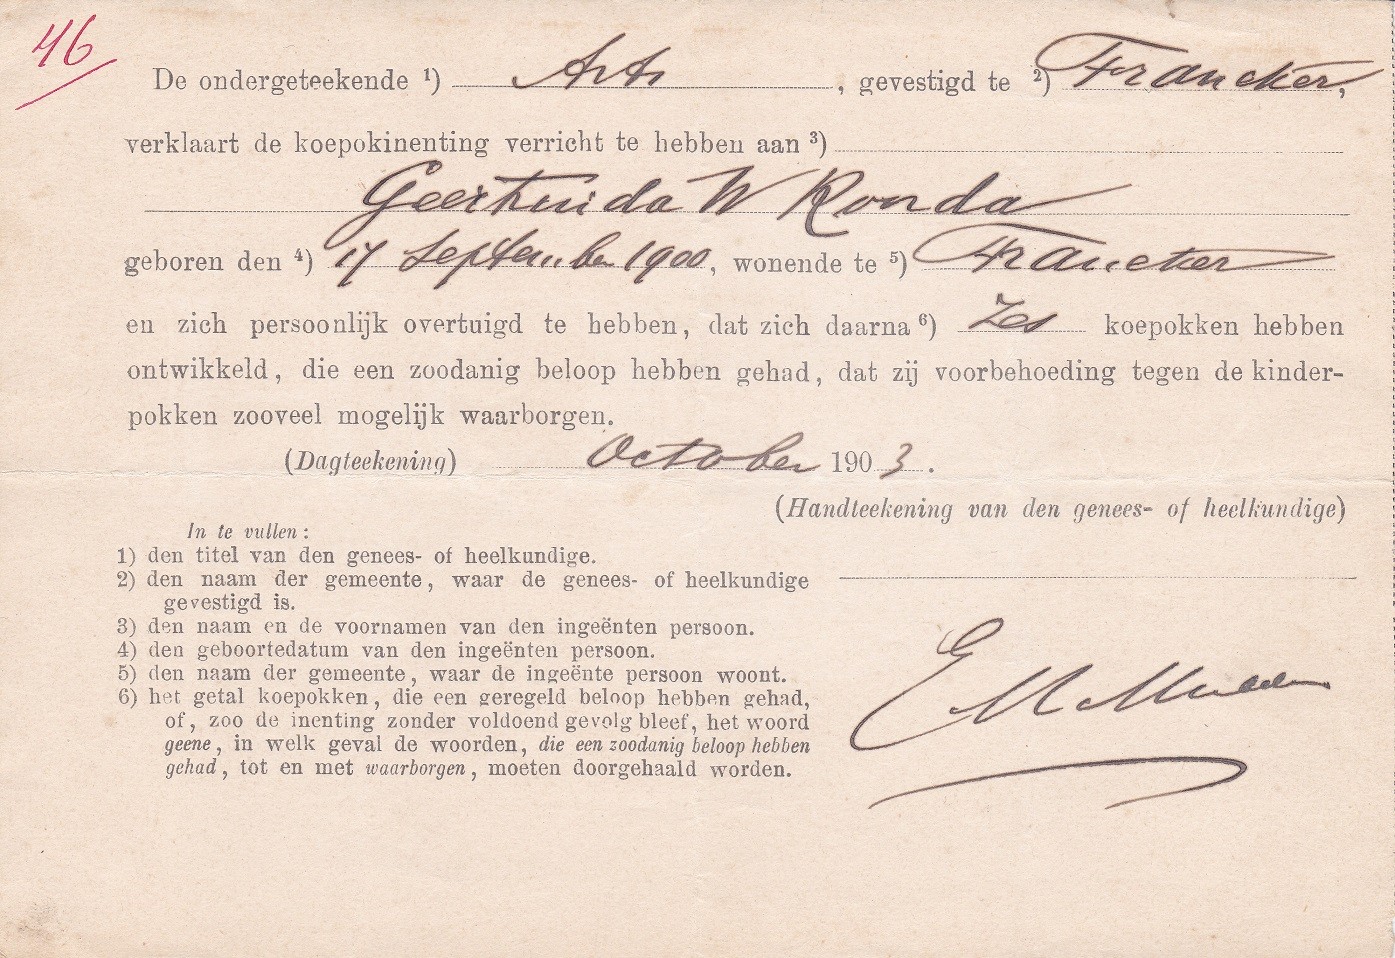 46
De ondergeteekende 1) Arts, gevestigd te 2) Franeker,
verklaart de koepokinenting verricht te hebben aan 3)
Geertruida W Ronda
geboren den 4) 17 September 1900, wonende te 5) Franeker
en zich persoonlijk overtuigd te hebben, dat zich daarna 6) Zes koepokken hebben
ontwikkeld, die een zoodanig beloop hebben gehad, dat zij voorbehoeding tegen de kinder-
pokken zooveel mogelijk waarborgen.
(Dagteekening) October 1903.
(Handteekening van den genees- of heelkundige)
In te vullen:
1) den titel van den genees- of heelkundige.
2) den naam der gemeente, waar de genees- of heelkundige
gevestigd is.
3) den naam en de voornamen van den ingeënten persoon.
4) den geboortedatum van den ingeënten persoon.
5) den naam der gemeente, waar de ingeënte persoon woont.
6) het getal koepokken, die een geregeld beloop hebben gehad,
of, zoo de inenting zonder voldoend gevolg bleef, het woord
geene, in welk geval de woorden, die een zoodanig beloop hebben
gehad, tot en met waarborgen, moeten doorgehaald worden.
E M Mulder